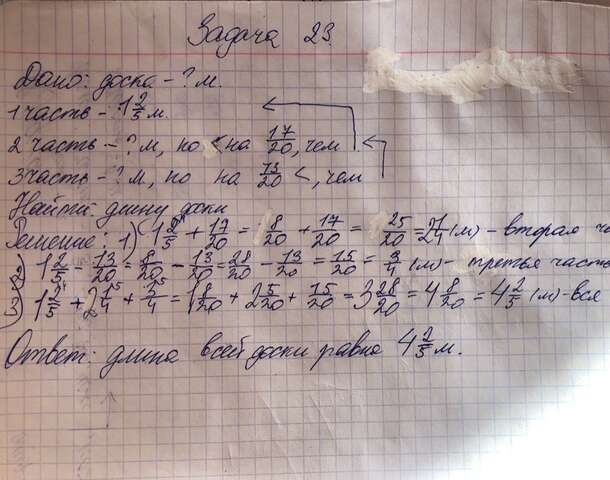 Задача 23.
Дано: доска - ? м.
1 часть - 1 2/5 м.
2 часть - ? м, но < на 17/20, чем
3 часть - ? м, но на 13/20 <, чем
Найти: длину доски
Решение: 1) 1 2/5 + 17/20 = 8/20 + 17/20 = 25/20 = 2 1/4 (м) - вторая
1 2/5 - 13/20 = 8/20 - 13/20 = 28/20 - 13/20 = 15/20 = 3/4 (м) - третья часть
1 2/5 + 2 1/4 + 3/4 = 1 8/20 + 2 5/20 + 15/20 = 3 28/20 = 4 8/20 = 4 2/5 (м) - вся
Ответ: длина всей доски равна 4 2/5 м.